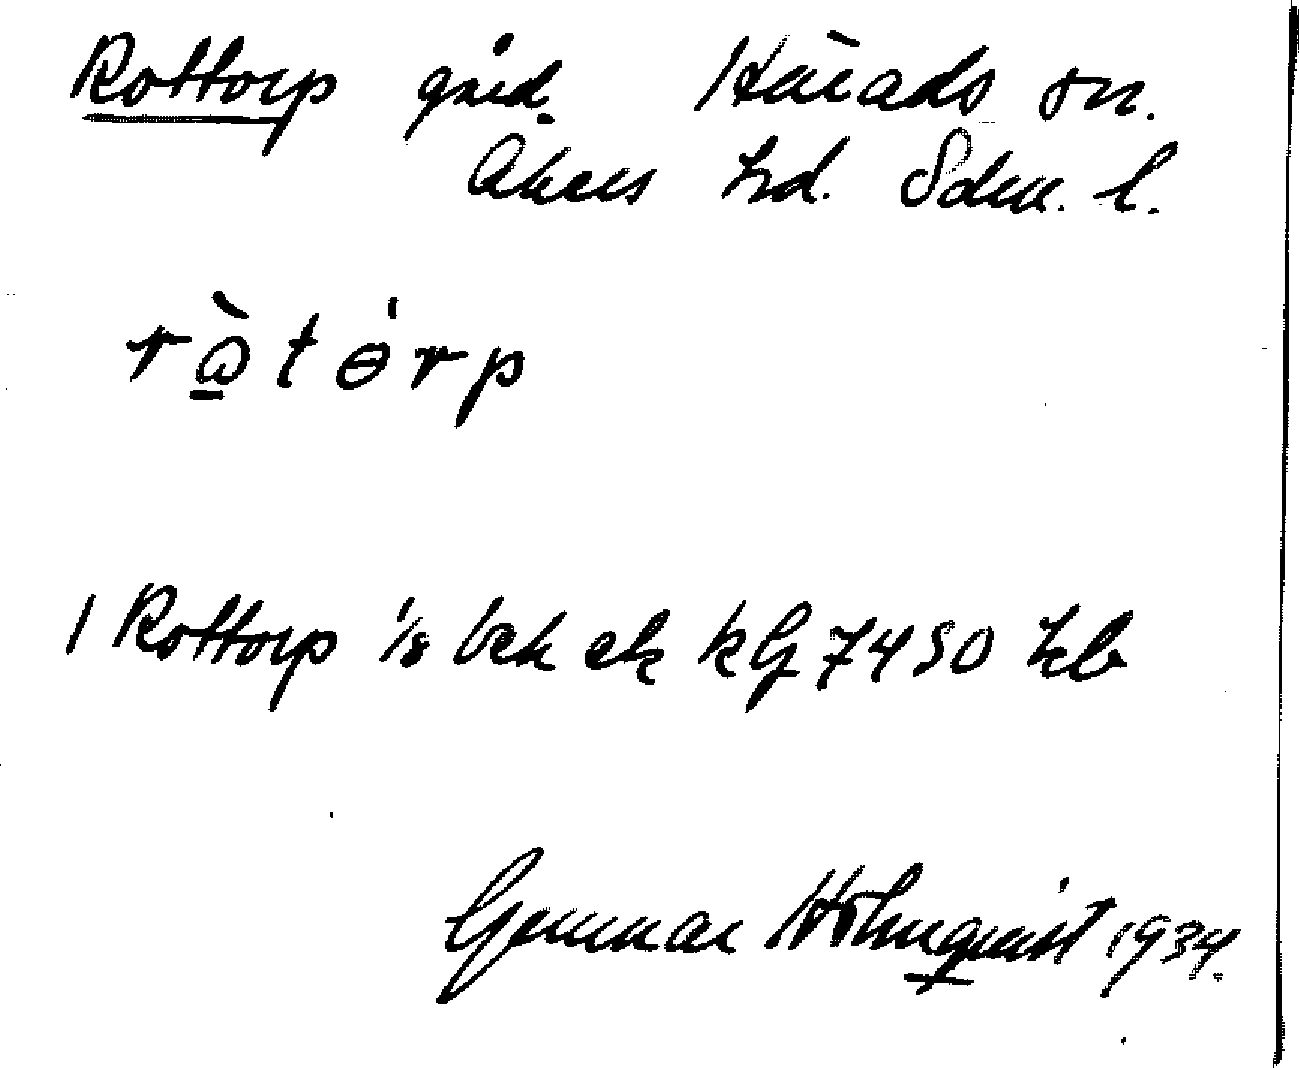 Rottorp gård. Härads sn.
Åkers hd. Sdm. l.
rὰ̱tɵ́rp
1 Rottorp 1/8 bek ek kG 7450 hb
Gunnar Holmqvist 1934.